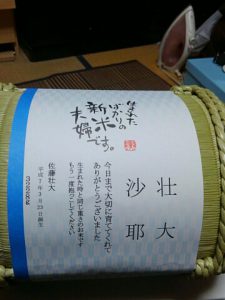 生まれた
ばかりの
新米
夫婦です。
壮大
沙耶
今日まで大切に育ててくれて
ありがとうございました
生まれた時と同じ重さのお米です
もう一度抱っこしてください
佐藤壮大
平成7年3月23日誕生